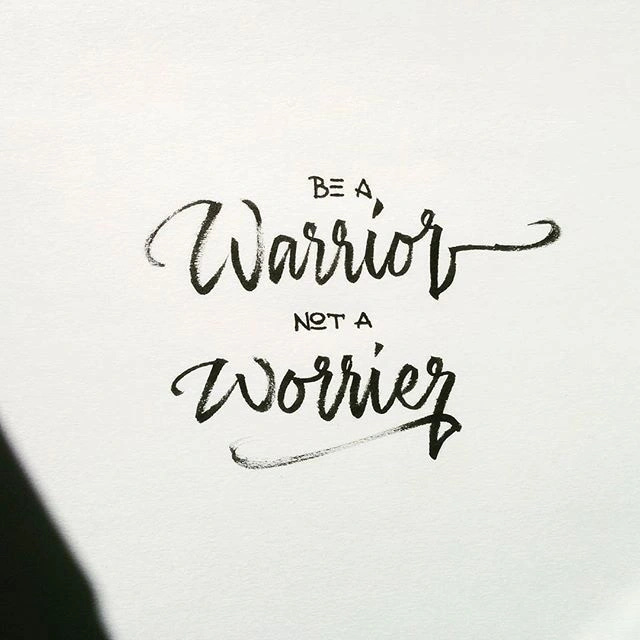 BE A
Warrior
NOT A
Worrier